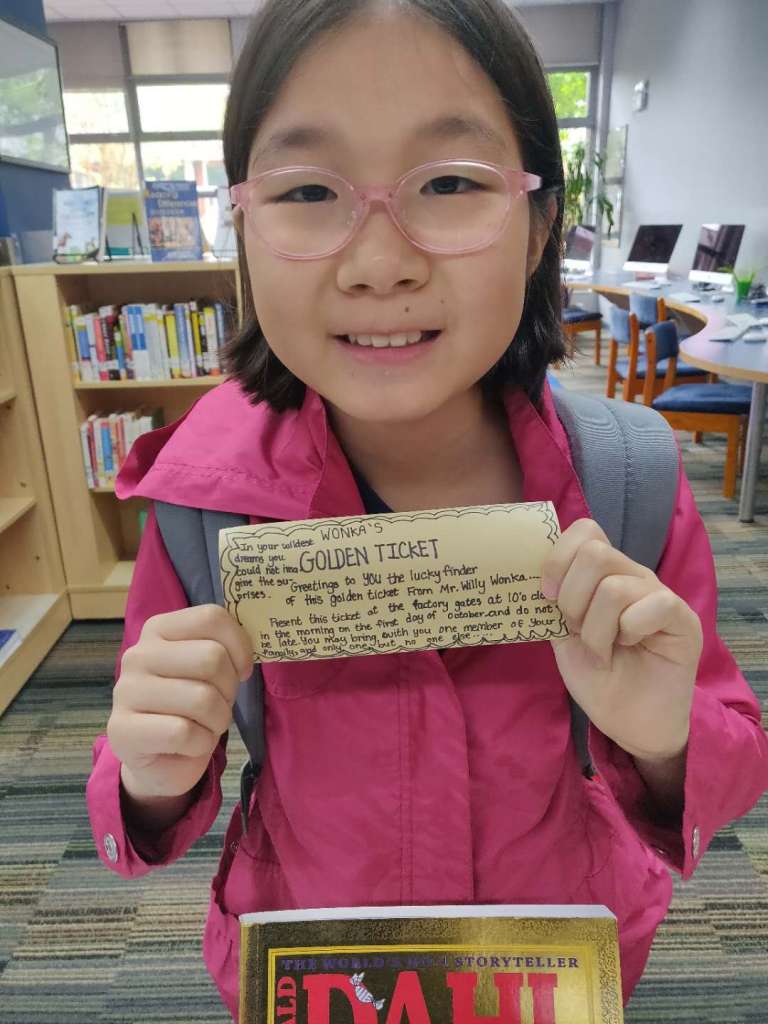 Reading
Differences
WONKA'S
GOLDEN TICKET
In your wildest
dreams you
could not ima
gine the su
prises.
Greetings to YOU the lucky finder
of this golden ticket From Mr. Willy Wonka....
Present this ticket at the factory gates at 10'o clo
in the morning on the first day of october and do not
be late. You may bring with you one member of your
family, and only one, but no one else....
THE WORLD'S STORYTELLER
ALD DAHL